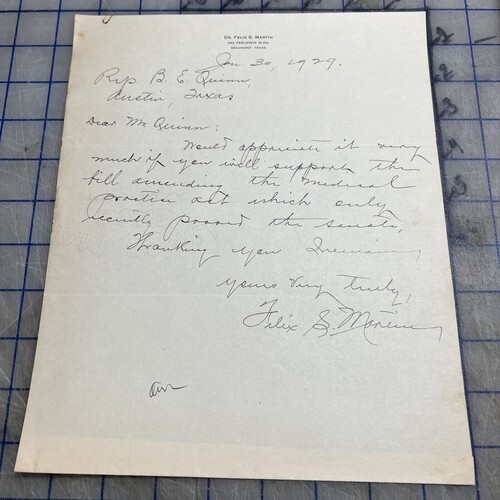 DR. FELIX S. MARTIN
PERLSTEIN BLDG.
BEAUMONT, TEXAS
Jan. 30, 1929.
Rep B. E. Quinn,
Austin, Texas
Dear Mr Quinn:
Would appreciate it very
much if you will support the
bill amending the Medical
practice act which only
recently passed the senate,
Thanking you I remain,
yours very truly,
Felix S. Martin